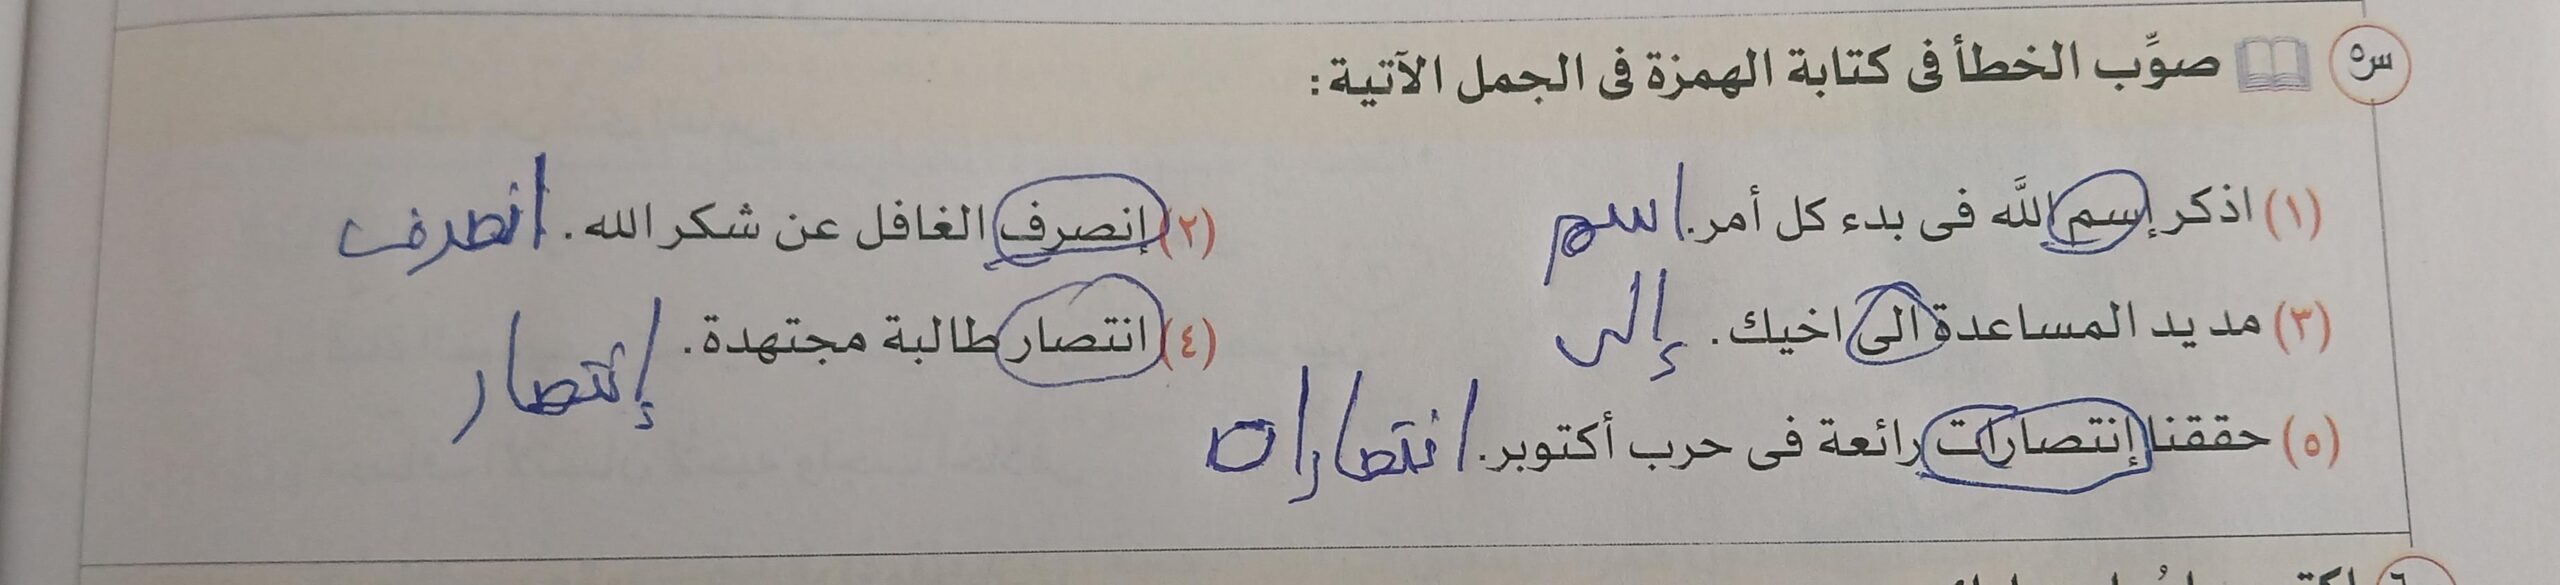 س٥ صوِّب الخطأ فى كتابة الهمزة فى الجمل الآتية:
(١) اذكر إسم اللَّه فى بدء كل أمر. اسم
(٢) إنصرف الغافل عن شكر الله. انصرف
(٣) مد يد المساعدة الى اخيك. إلى
(٤) انتصار طالبة مجتهدة. إنتصار
(٥) حققنا إنتصارات رائعة فى حرب أكتوبر. انتصارات